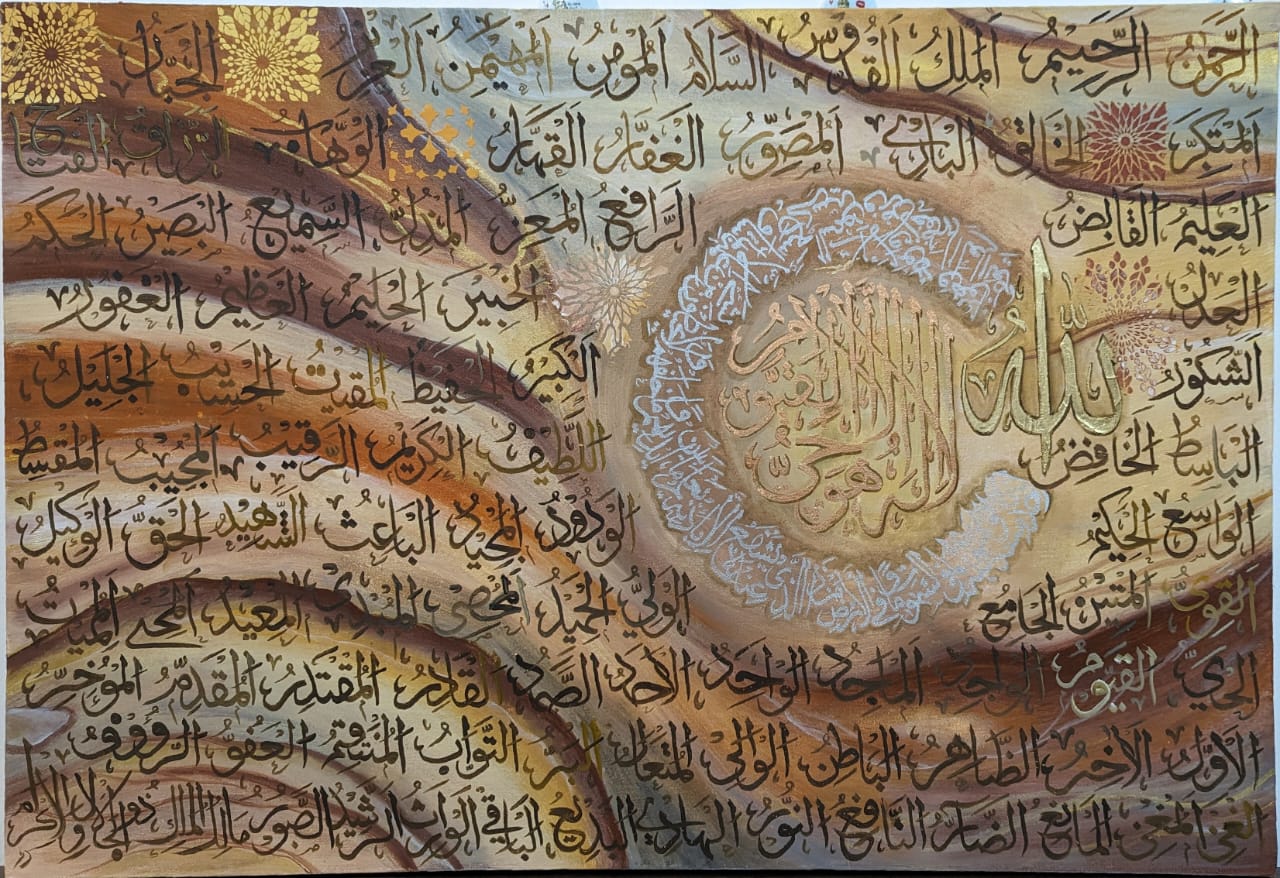 الرَّحْمٰنُ الرَّحِيمُ المَلِكُ القُدُّوسُ السَّلَامُ المُؤْمِنُ المُهَيْمِنُ العَزِيزُ الجَبَّارُ
المُتَكَبِّرُ الخَالِقُ البَارِئُ المُصَوِّرُ الغَفَّارُ القَهَّارُ الوَهَّابُ الرَّزَّاقُ الفَتَّاحُ
العَلِيمُ القَابِضُ الرَّافِعُ المُعِزُّ المُذِلُّ السَّمِيعُ البَصِيرُ الحَكَمُ
العَدْلُ الخَبِيرُ الحَلِيمُ العَظِيمُ الغَفُورُ
الشَّكُورُ الكَبِيرُ الحَفِيظُ المُقِيتُ الحَسِيبُ الجَلِيلُ
البَاسِطُ الخَافِضُ اللَّطِيفُ الكَرِيمُ الرَّقِيبُ المُجِيبُ المُقْسِطُ
الوَاسِعُ الحَكِيمُ الوَدُودُ المَجِيدُ البَاعِثُ الشَّهِيدُ الحَقُّ الوَكِيلُ
القَوِيُّ المَتِينُ الجَامِعُ الوَلِيُّ الحَمِيدُ المُحْصِي المُبْدِئُ المُعِيدُ المُحْيِي المُمِيتُ
الحَيُّ القَيُّومُ الوَاجِدُ المَاجِدُ الوَاحِدُ الأَحَدُ الصَّمَدُ القَادِرُ المُقْتَدِرُ المُقَدِّمُ المُؤَخِّرُ
الأَوَّلُ الآخِرُ الظَّاهِرُ البَاطِنُ الوَالِي المُتَعَالُ البَرُّ التَّوَّابُ المُنْتَقِمُ العَفُوُّ الرَّؤُوفُ
الغَنِيُّ المُغْنِي المَانِعُ الضَّارُّ النَّافِعُ النُّورُ الهَادِي البَدِيعُ البَاقِي الوَارِثُ الرَّشِيدُ الصَّبُورُ مَالِكُ المُلْكِ ذُو الجَلَالِ وَالإِكْرَامِ
اللهُ
لَا إِلٰهَ إِلَّا هُوَ الحَيُّ القَيُّومُ